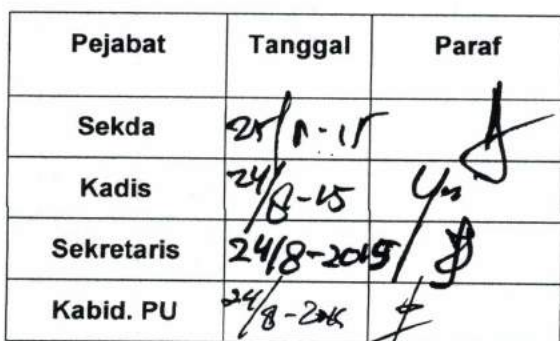 Pejabat Tanggal Paraf
Sekda 25/8-15
Kadis 24/8-15
Sekretaris 24/8-2015
Kabid. PU 24/8-2015